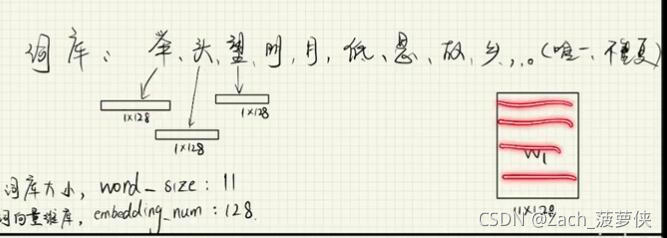 词库: 举、头、望、明、月、低、思、故、乡、,。(唯一、不重复)
1×128
1×128
1×128
W1
11×128
词库大小, word_size: 11
词向量维度, embedding_num: 128.
CSDN @Zach_菠萝侠